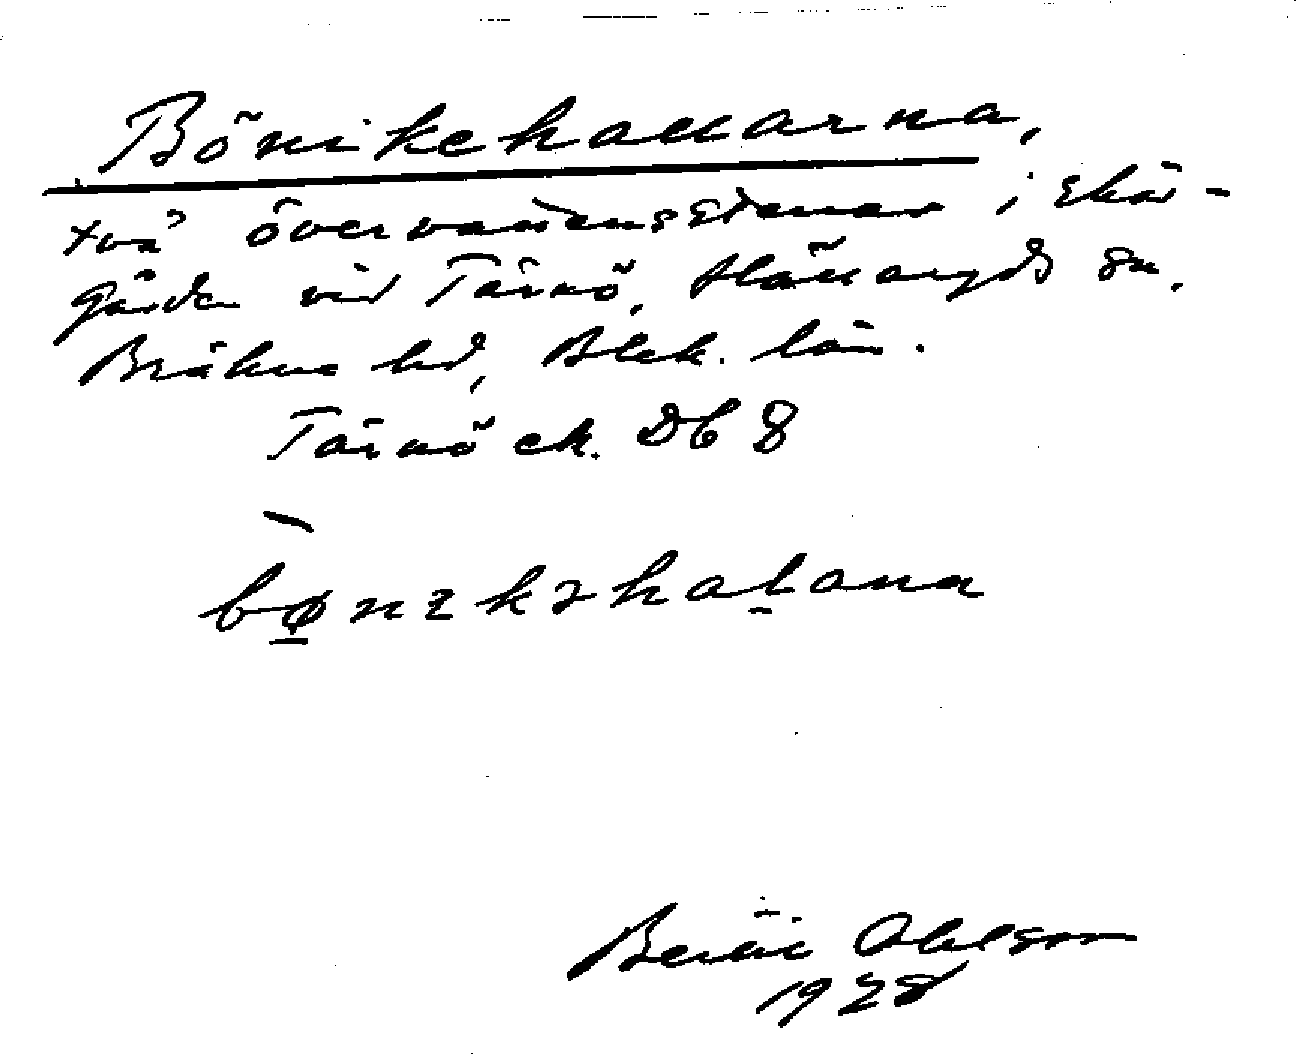 Bönikehallarna,
två övervattensstenar i skär-
gården vid Tärnö, Hällaryds sn,
Bräkne hd, Blek. län.
Tärnö ek. Db 8
bønıkəhaḷana
Ohlsson
1928